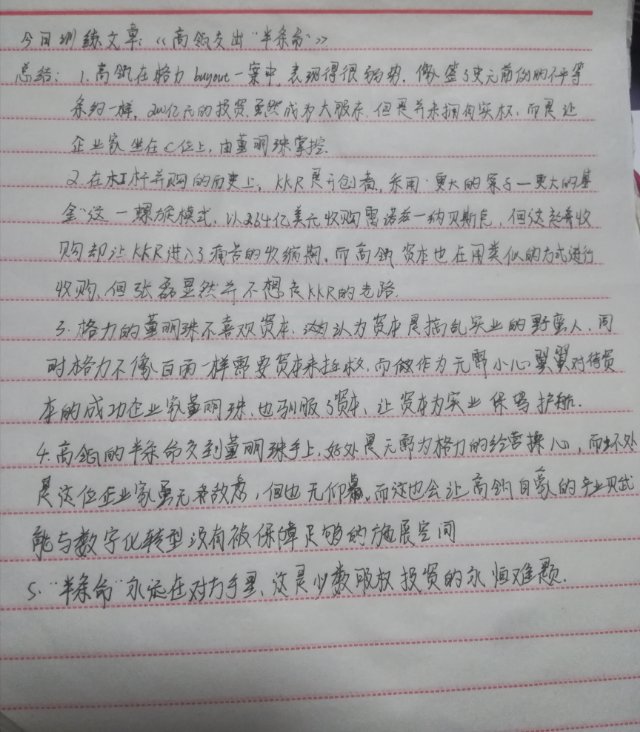 今日训练文章:《高瓴交出"半条命"》
总结: 1.高瓴在格力buyout一案中,表现得很弱势,像签了史无前例的不平等
条约一样,400亿元的投资虽然成为大股东,但是并未拥有实权,而是让
企业家坐在C位上,由董明珠掌控.
2.在杠杆并购的历史上,KKR是开创者,采用"更大的案子—更大的基
金"这一螺旋模式,以264亿美元收购雷诺兹—纳贝斯克,但这起收
购却让KKR进入了痛苦的收缩期,而高瓴资本也在用类似的方式进行
收购,但张磊显然并不想走KKR的老路.
3.格力的董明珠不喜欢资本,认为资本是捣乱实业的野蛮人,同
时格力不像百丽一样需要资本来拯救,而做作为无需小心翼翼对待资
本的成功企业家董明珠,也驯服了资本,让资本为实业保驾护航.
4.高瓴的半条命交到董明珠手上,好处是无需为格力的经营操心,而坏处
是这位企业家虽无敌意,但也无仰慕,而这也会让高瓴自豪的产业赋
能与数字化转型没有被保障足够的施展空间
5."半条命"永远在对方手里,这是少数股权投资的永恒难题.